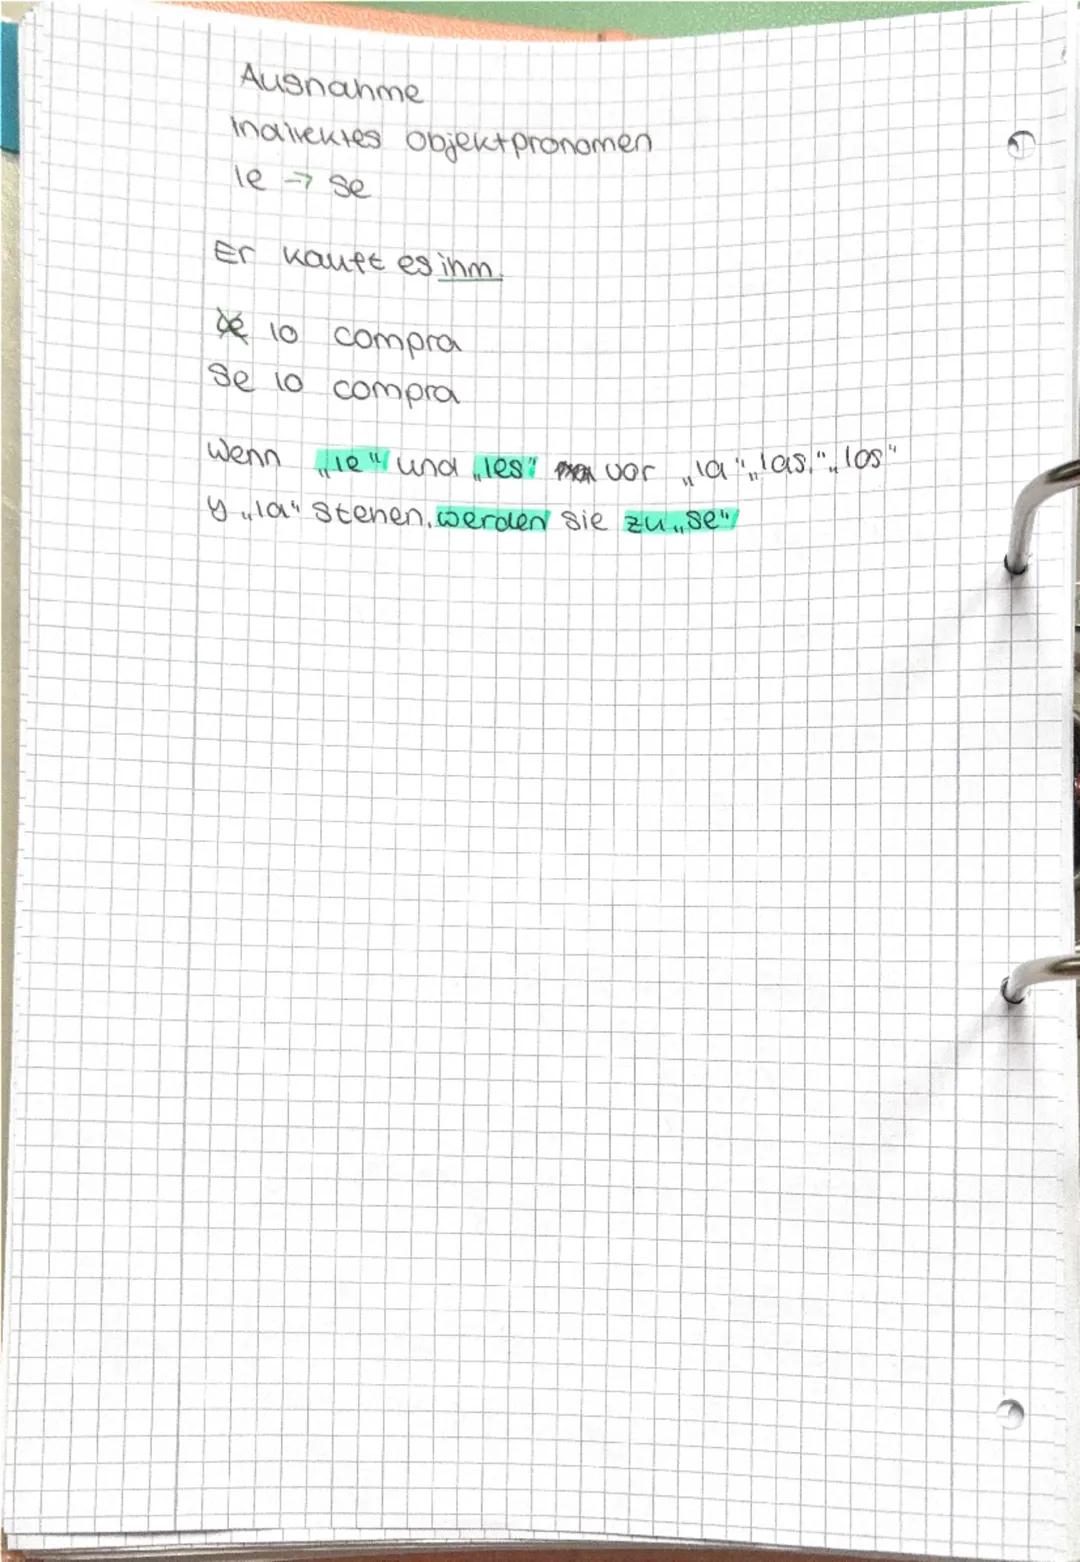 Ausnahme
indirektes Objektpronomen
le → se
Er kauft es ihm.
le lo compra
Se lo compra
Wenn „le" und „les" vor „la", „las", „los"
y „la" stehen, werden sie zu „se"